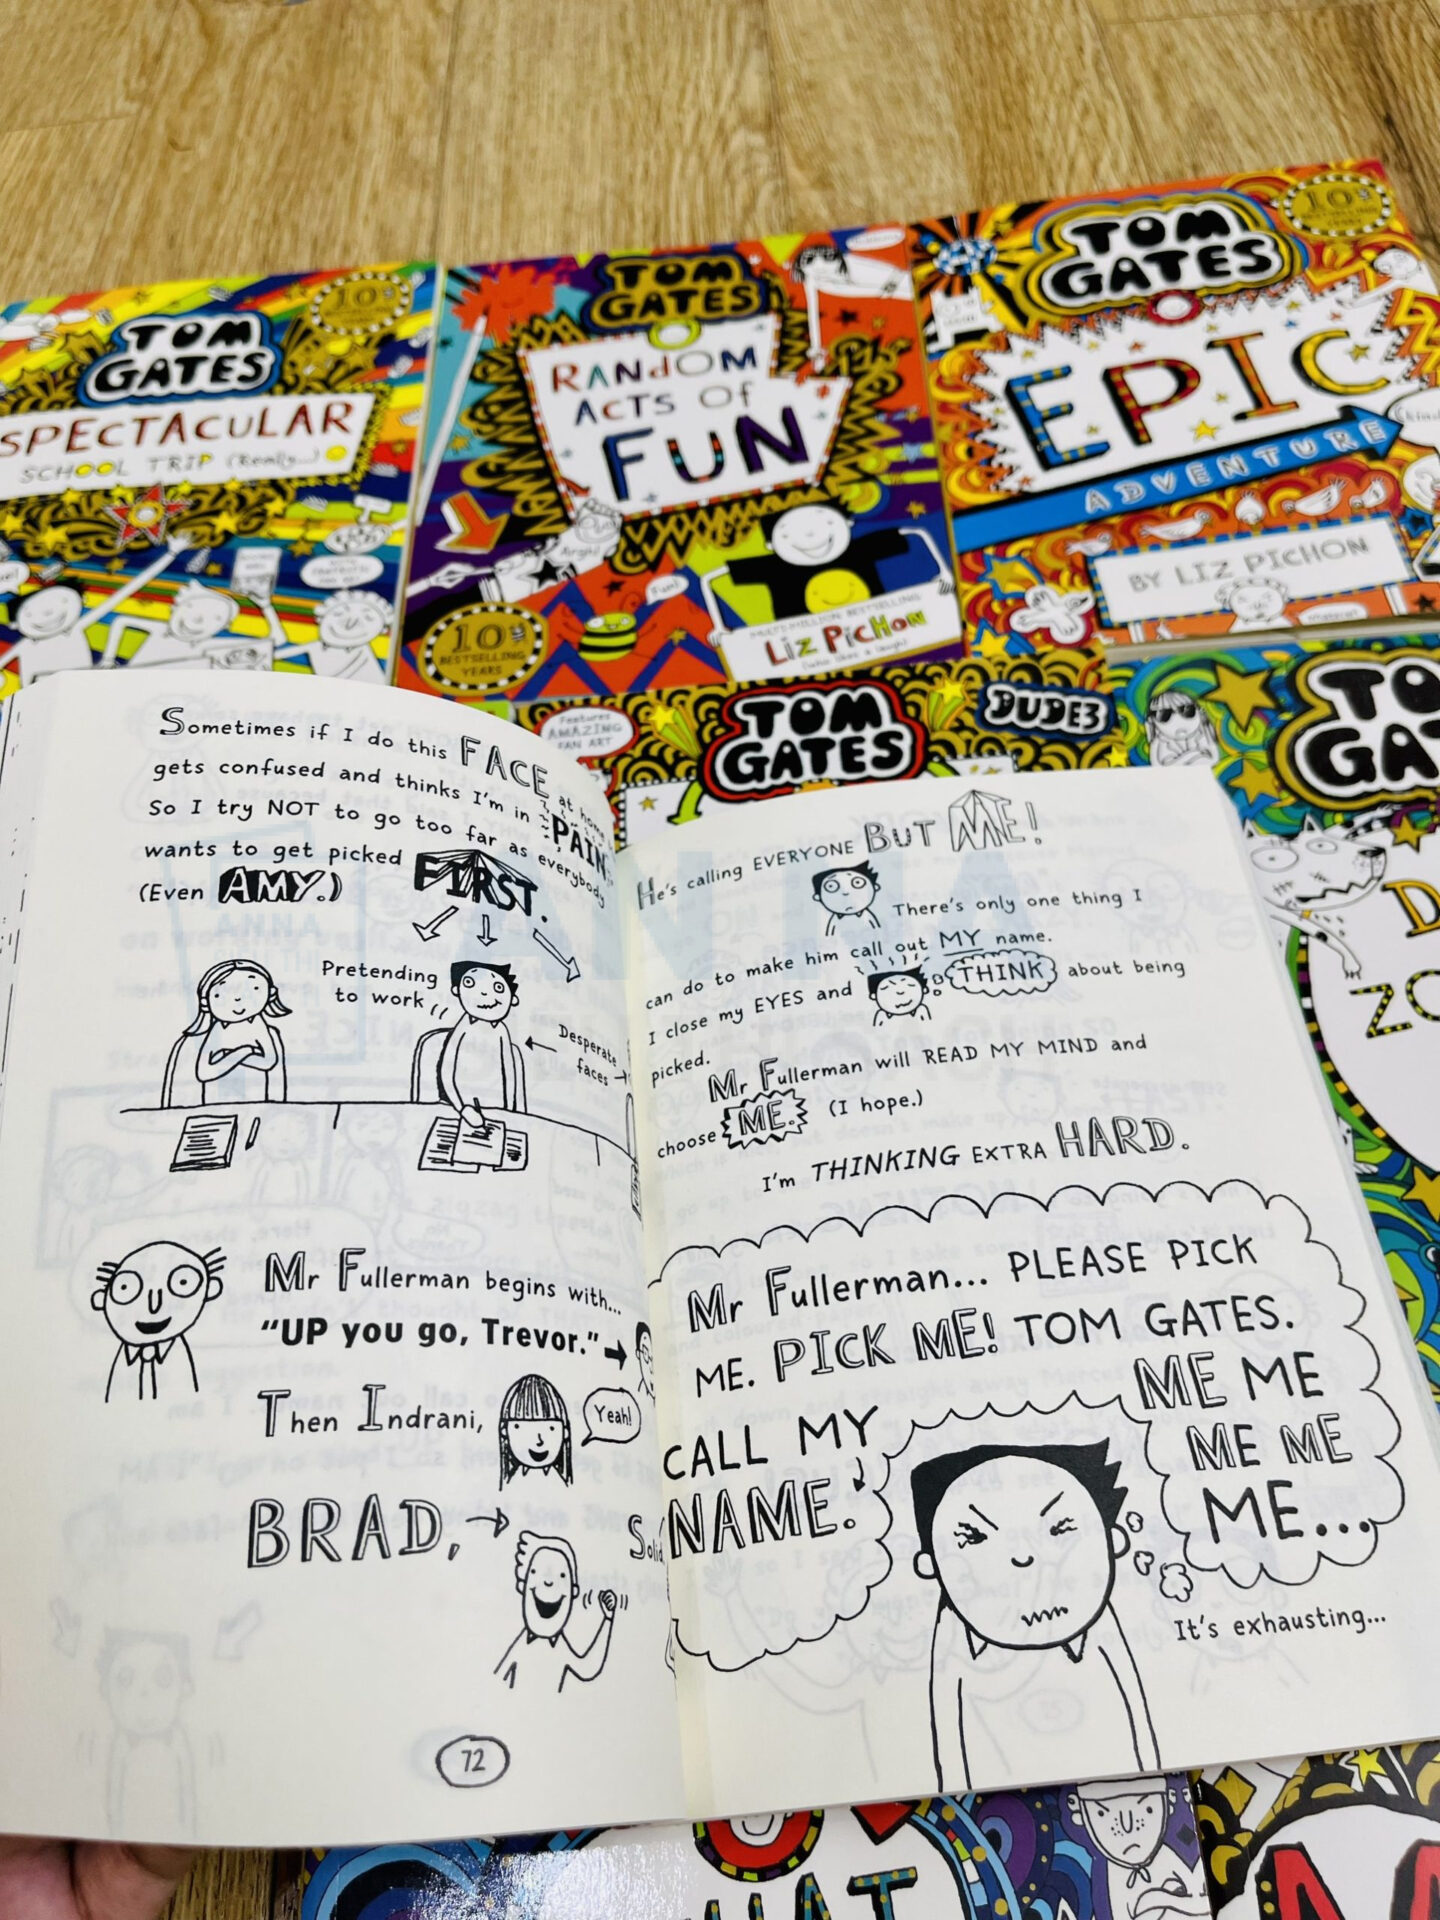 TOM
GATES
SPECTACULAR
SCHOOL TRIP (Really...)
TOM
GATES
RANdOM
ACTS Of
FUN
Arghh!
Fun!
10
BESTSELLING
YEARS
MULTI-MILLION BESTSELLING
LIZ PICHON
(who likes a laugh)
10
TOM
GATES
EPIC
ADVENTURE
BY LIZ PICHON
Features
AMAZING
FAN ART
TOM
GATES
DUDE3
Sometimes if I do this FACE at home
gets confused and thinks I'm in PAIN.
So I try NOT to go too far as everybody
wants to get picked FIRST.
(Even AMY.)
Pretending
to work
Desperate
faces
Mr Fullerman begins with...
"UP you go, Trevor."
Then Indrani,
Yeah!
BRAD,
Solid
72
He's calling EVERYONE BUT ME!
There's only one thing I
can do to make him call out MY name.
I close my EYES and THINK about being
picked.
Mr Fullerman will READ MY MIND and
choose ME. (I hope.)
I'm THINKING EXTRA HARD.
Mr Fullerman... PLEASE PICK
ME. PICK ME! TOM GATES.
CALL MY
NAME.
ME ME
ME ME
ME...
It's exhausting...